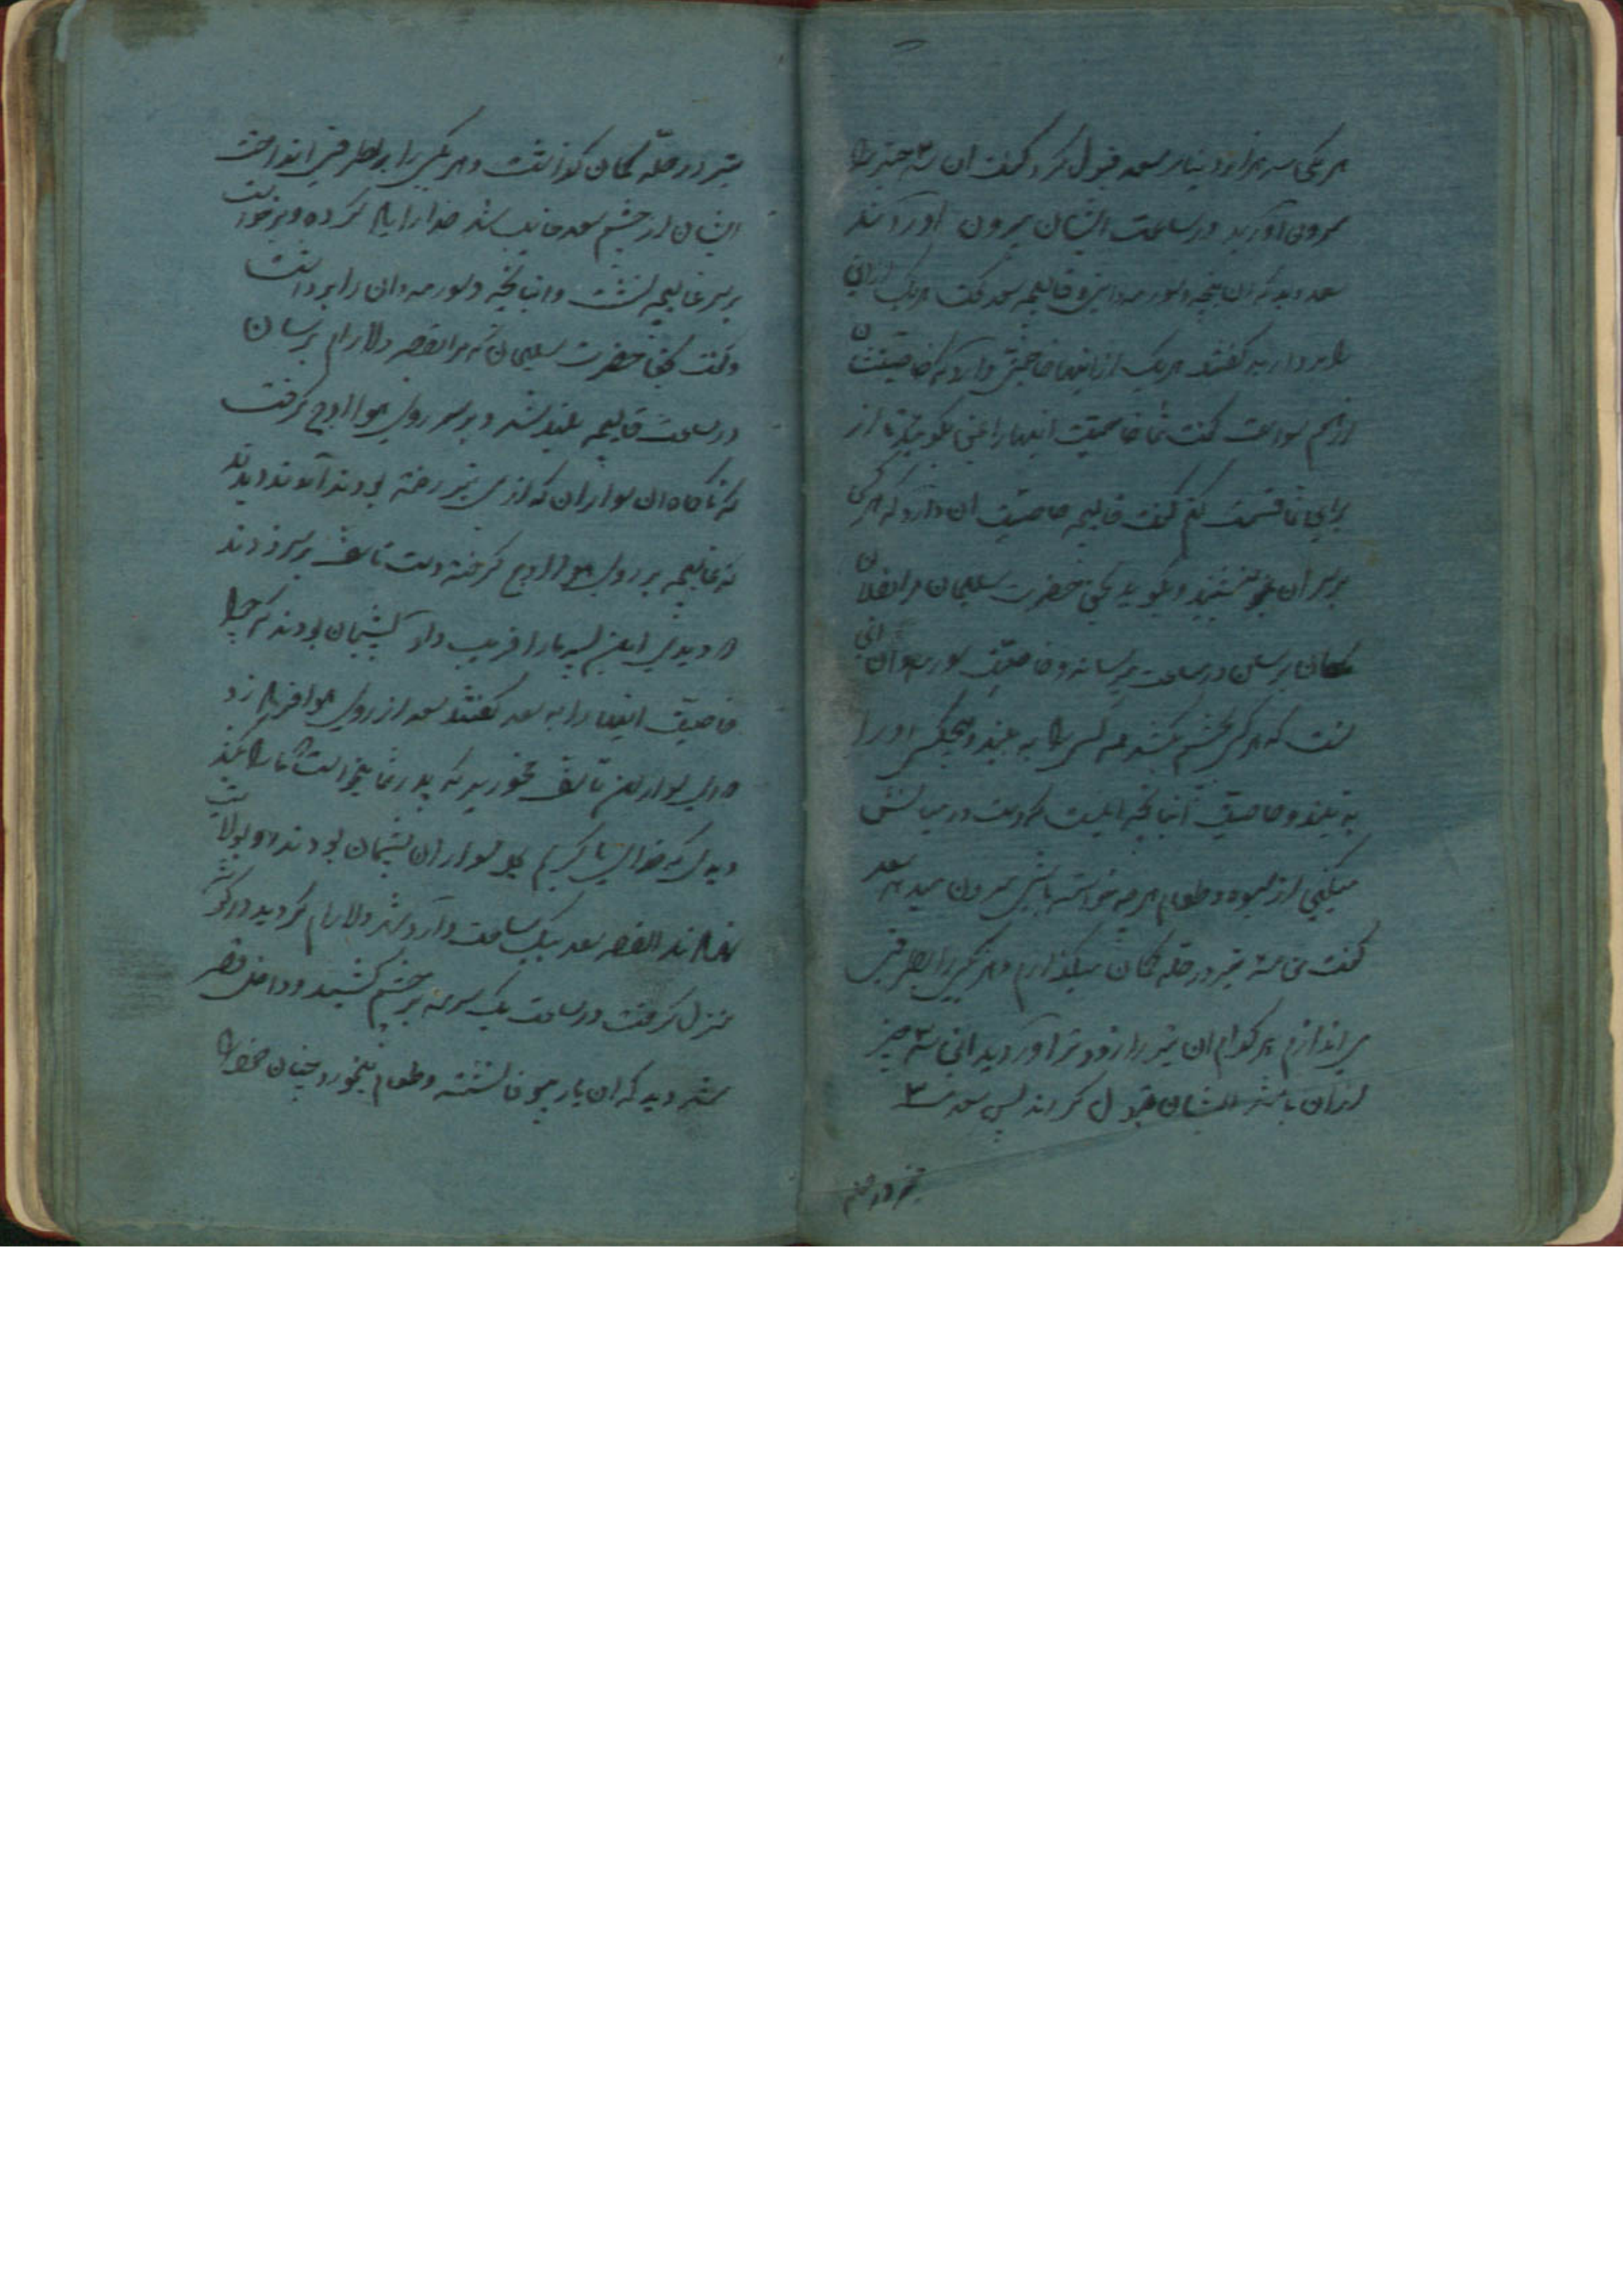 هر یکی سه هزار دینار سعد قبول کرد گفت ان سه چیز را
بیرون آورید در ساعت ایشان بیرون اوردند
سعد دید که ان و سورمه دانی و قالیچه سعد گفت هر یک
را بردارید گفتند هر یک از اینها خاصیتی دارد که خاصیتش
از هم سواست گفت شما خاصیت اینها را بمن بگوئید تا از
برای شما قسمت کنم گفت قالیچه خاصیت ان دارد که هر کس
بر سر ان بنشیند و بگوید بحق حضرت سلیمان مرا بفلان
مکان برسان در ساعت میرساند و خاصیت سورمه دان انی
است که هر کس بچشم بکشد همه کس را به بیند و هیچکس اورا
نه بیند و خاصیت انبانچه اینست که دست در میانش
میکنی از میوه و طعام هر چه خواسته باشی بیرون میدهد سعد
گفت من سه تیر در چله کمان میگذارم و هر یکی را بطرفی
می اندازم هر کدام ان تیر را زودتر آوردید این سه چیز
از ان باشد ایشان قبول کردند پس سعد سه
تیر در چله
تیر در چله کمان گذاشت و هر یکی را بر طرفی انداخت
ایشان از چشم سعد غایب شد خدا را یاد کرده و برخواست
بر سر غالیچه نشست و انبانچه و سورمه دان را برداشت
و گفت بحق حضرت سلیمان که مرا بقصر دلارام برسان
در ساعت قالیچه بلند شد و بر سر روی هوا اوج گرفت
که ناگاه ان سواران که از پی تیر رفته بودند آمدند دیدند
که غالیچه بر روی هوا اوج گرفته دست تاسف بر سر زدند
که دیدی این پسر ما را فریب داد پشیمان بودند که چرا
خاصیت اینها را به سعد گفتند سعد از روی هوا فریاد زد
که ای سواران تاسف مخورید که پدر شما
دیدی که خدای سواران پشیمان بودند
القصه سعد بیک ساعت وارد شهر دلارام گردید در گوشه
منزل گرفت در ساعت یک سرمه بر چشم کشید و داخل قصر
شد دید که ان یار بیوفا نشسته و طعام میخورد چنان